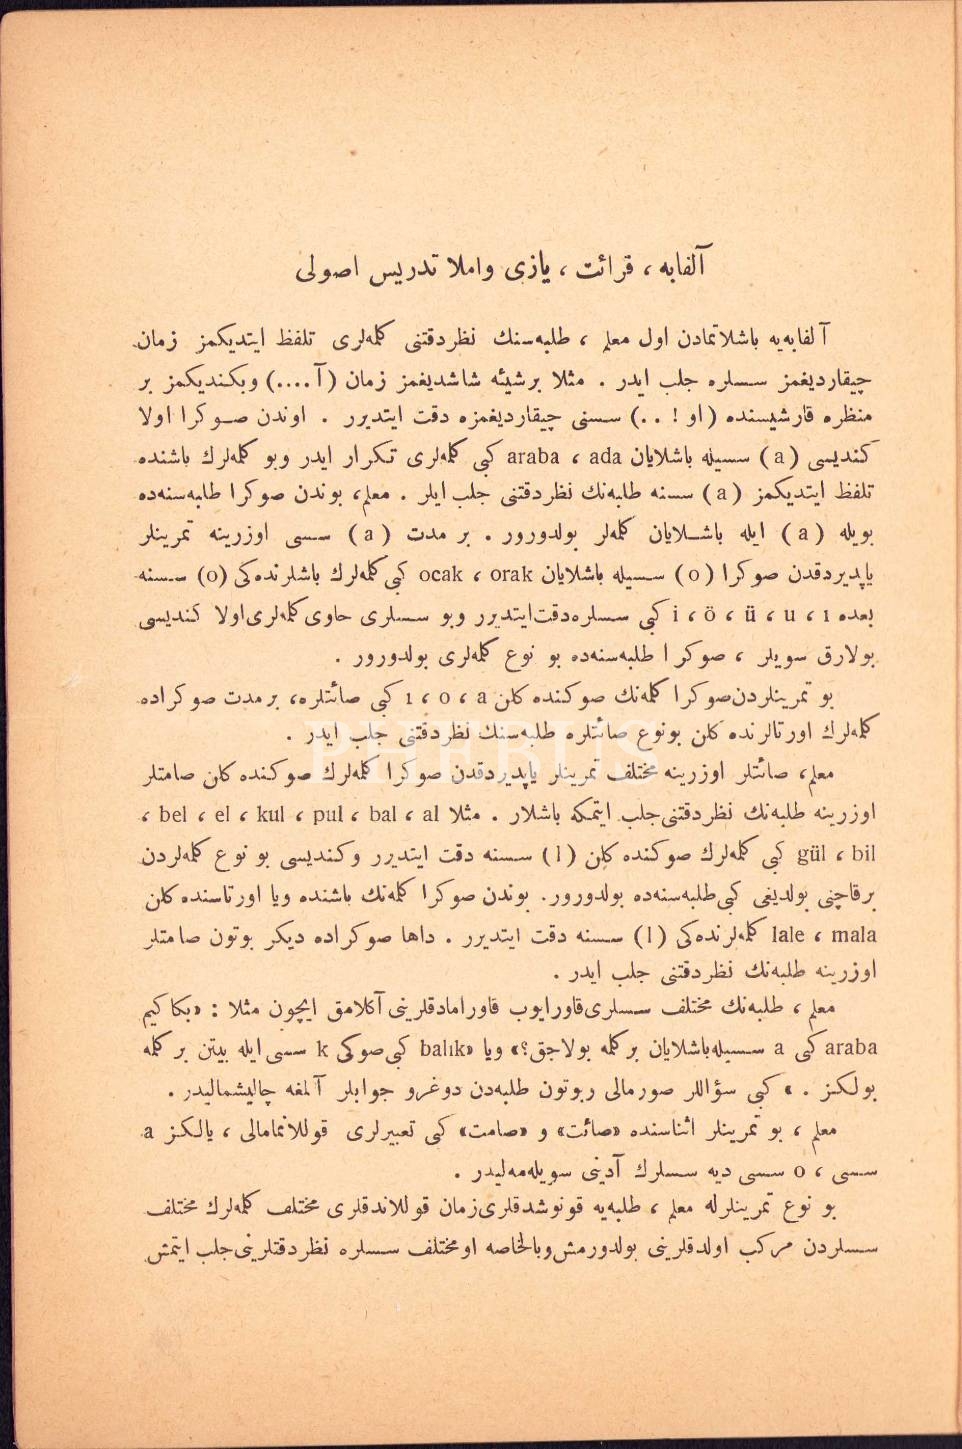 آلفابه ، قرائت ، يازى واملا تدريس اصولى
آلفابه‌يه باشلاتمادن اول معلم ، طلبه‌سنك نظردقتنى كلمه‌لرى تلفظ ايتديكمز زمان
چيقارديغمز سسلره جلب ايدر . مثلا برشيئه شاشديغمز زمان (آ ....) وبكنديكمز بر
منظره قارشيسنده (او ! ..) سسنى چيقارديغمزه دقت ايتديرر . اوندن صوكرا اولا
كنديسى (a) سسيله باشلايان araba ، ada كبى كلمه‌لرى تكرار ايدر وبو كلمه‌لرك باشنده
تلفظ ايتديكمز (a) سسنه طلبه‌نك نظردقتنى جلب ايلر . معلم، بوندن صوكرا طلبه‌سنه‌ده
بويله (a) ايله باشلايان كلمه‌لر بولدورور . بر مدت (a) سسى اوزرينه تمرينلر
ياپديردقدن صوكرا (o) سسيله باشلايان ocak ، orak كبى كلمه‌لرك باشلرنده‌كى (o) سسنه
بعده i ، ö ، ü ، u ، ı كبى سسلره‌دقت‌ايتديرر وبو سسلرى حاوى كلمه‌لرى اولا كنديسى
بولارق سويلر ، صوكرا طلبه‌سنه‌ده بو نوع كلمه‌لرى بولدورور .
بو تمرينلردن‌صوكرا كلمه‌نك صوكنده كلن ı ، o ، a كبى صائتلره، برمدت صوكراده
كلمه‌لرك اورتالرنده كلن بونوع صائتلره طلبه‌سنك نظردقتنى جلب ايدر .
معلم، صائتلر اوزرينه مختلف تمرينلر ياپديردقدن صوكرا كلمه‌لرك صوكنده كلن صامتلر
اوزرينه طلبه‌نك نظردقتنى‌جلب ايتمكه باشلار . مثلا bel ، el ، kul ، pul ، bal ، al ،
gül ، bil كبى كلمه‌لرك صوكنده كلن (l) سسنه دقت ايتديرر وكنديسى بو نوع كلمه‌لردن
برقاچنى بولديغى كبى‌طلبه‌سنه‌ده بولدورور. بوندن صوكرا كلمه‌نك باشنده ويا اورتاسنده كلن
lale ، mala كلمه‌لرنده‌كى (l) سسنه دقت ايتديرر . داها صوكراده ديكر بوتون صامتلر
اوزرينه طلبه‌نك نظردقتنى جلب ايدر .
معلم ، طلبه‌نك مختلف سسلرى‌قاورايوب قاورامادقلرينى آكلامق ايچون مثلا : «بكا كيم
araba كبى a سسيله‌باشلايان بركلمه بولاجق؟» ويا «balık كبى‌صوكى k سسى‌ايله بيتن بركلمه
بولكز . » كبى سؤاللر صورمالى وبوتون طلبه‌دن دوغرو جوابلر آلمغه چاليشماليدر .
معلم ، بو تمرينلر اثناسنده «صائت» و «صامت» كبى تعبيرلرى قوللانمامالى ، يالكز a
سسى ، o سسى ديه سسلرك آدينى سويله‌مه‌ليدر .
بو نوع تمرينلرله معلم ، طلبه‌يه قونوشدقلرى‌زمان قوللاندقلرى مختلف كلمه‌لرك مختلف
سسلردن مركب اولدقلرينى بولدورمش‌وبالخاصه اومختلف سسلره نظردقتلرينى‌جلب ايتمش